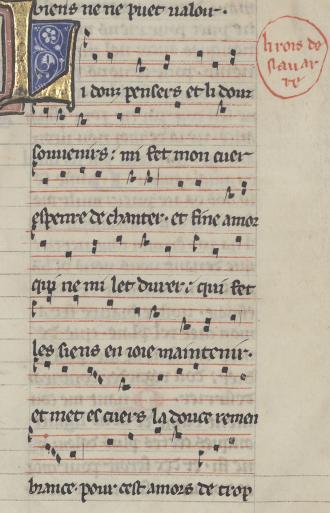 biens ne ne puet ualoir.
li rois de
nauar
re
Li douz pensers et li douz
souuenirs: mi fet mon cuer
esprenre de chanter. et fine amor
qui ne mi let durer: qui fet
les siens en ioie maintenir.
et met es cuers la douce remen
brance. pour cest amors de trop